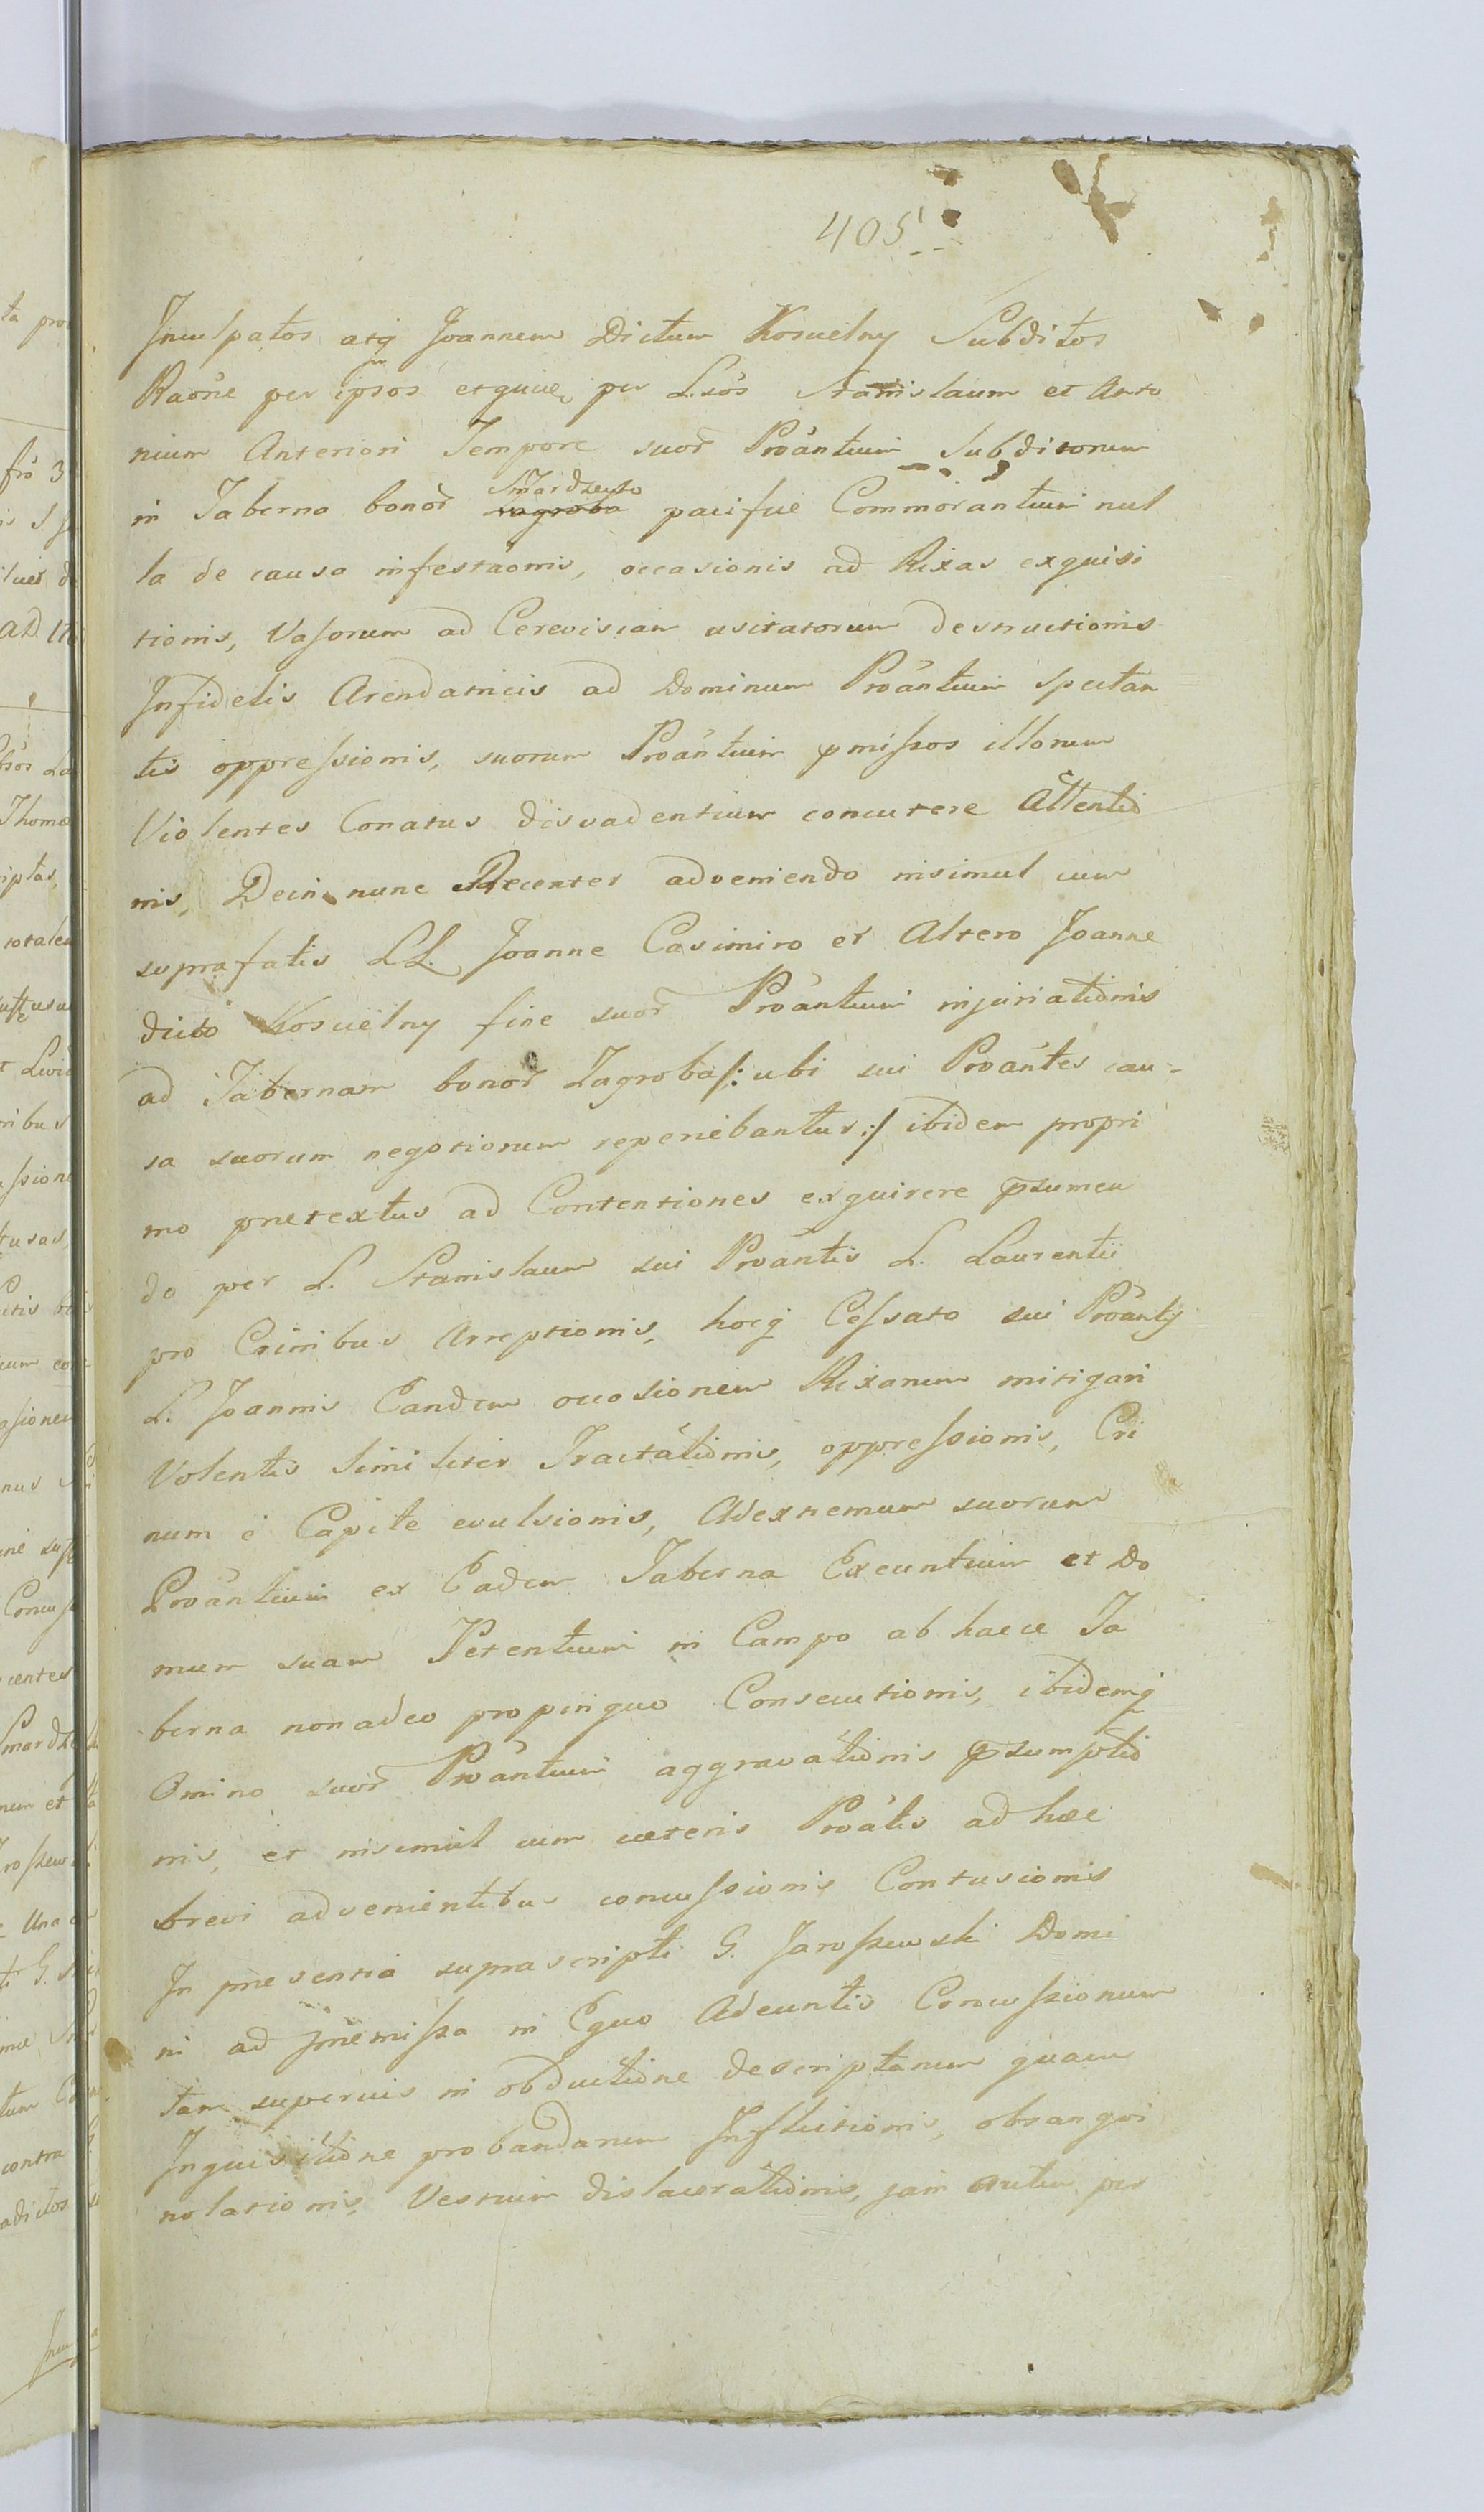 405
Inculpatos atq Joannem Dictum Kosuelny Subditos
Raone per ipsos et per L.sos Stanislaum et Anto
nium Anteriori Tempore suor Proantium Subditorum
in Taberna bonor Smardzewo pacifice Commorantium nul
la de causa infestaonis, occasionis ad Rixas exquisi
tionis, Vasorum ad Cerevisiam usitatorum destructionis
Infidelis Arendatricis ad Dominum Proantium spectan
tis oppressionis, suorum Proantium pmissos illorum
Violentes Conatus disvadentium concutere Attentio
nis, Dein nunc Recenter adveniendo insimul cum
suprafatis LL. Joanne Casimiro et Altero Joanne
dicto Kosuelny fine suor Proantium injuriationis
ad Tabernam bonor Zagroba /: ubi sui Proantes cau-
sa suorum negotiorum reperiebantur :/ ibidem propri
mo prætextus ad Contentiones exquirere psumen
do per L. Stanislaum sui Proantis L. Laurentii
pro Crinibus Arreptionis, hocq Cessato sui Proantis
L. Joannis Eandem occasionem Rixarum mitigari
Volentis Similiter Tractationis, oppressionis, Cri
num e Capite evulsionis, Adextremum suorum
Proantium ex Eadem Taberna Exeuntium et Do
mum suam Petentium in Campo ab haece Ta
berna non adeo propinquo Consecutionis, ibidemq
Omino suor Proantium aggravationis psumptio
nis, et insimul cum cæteris Proatis ad hæc
brevi advenientibus concussionis Contusionis
In præsentia suprascripti G. Jaroszewski Domi
ni ad præmissa in Equo Adeuntis Concussionum
tam superius in obductione descriptarum quam
Inquisitione probandarum Inflictionis, obsangvi
nolationis, Vestium dislacerationis, jam autem per